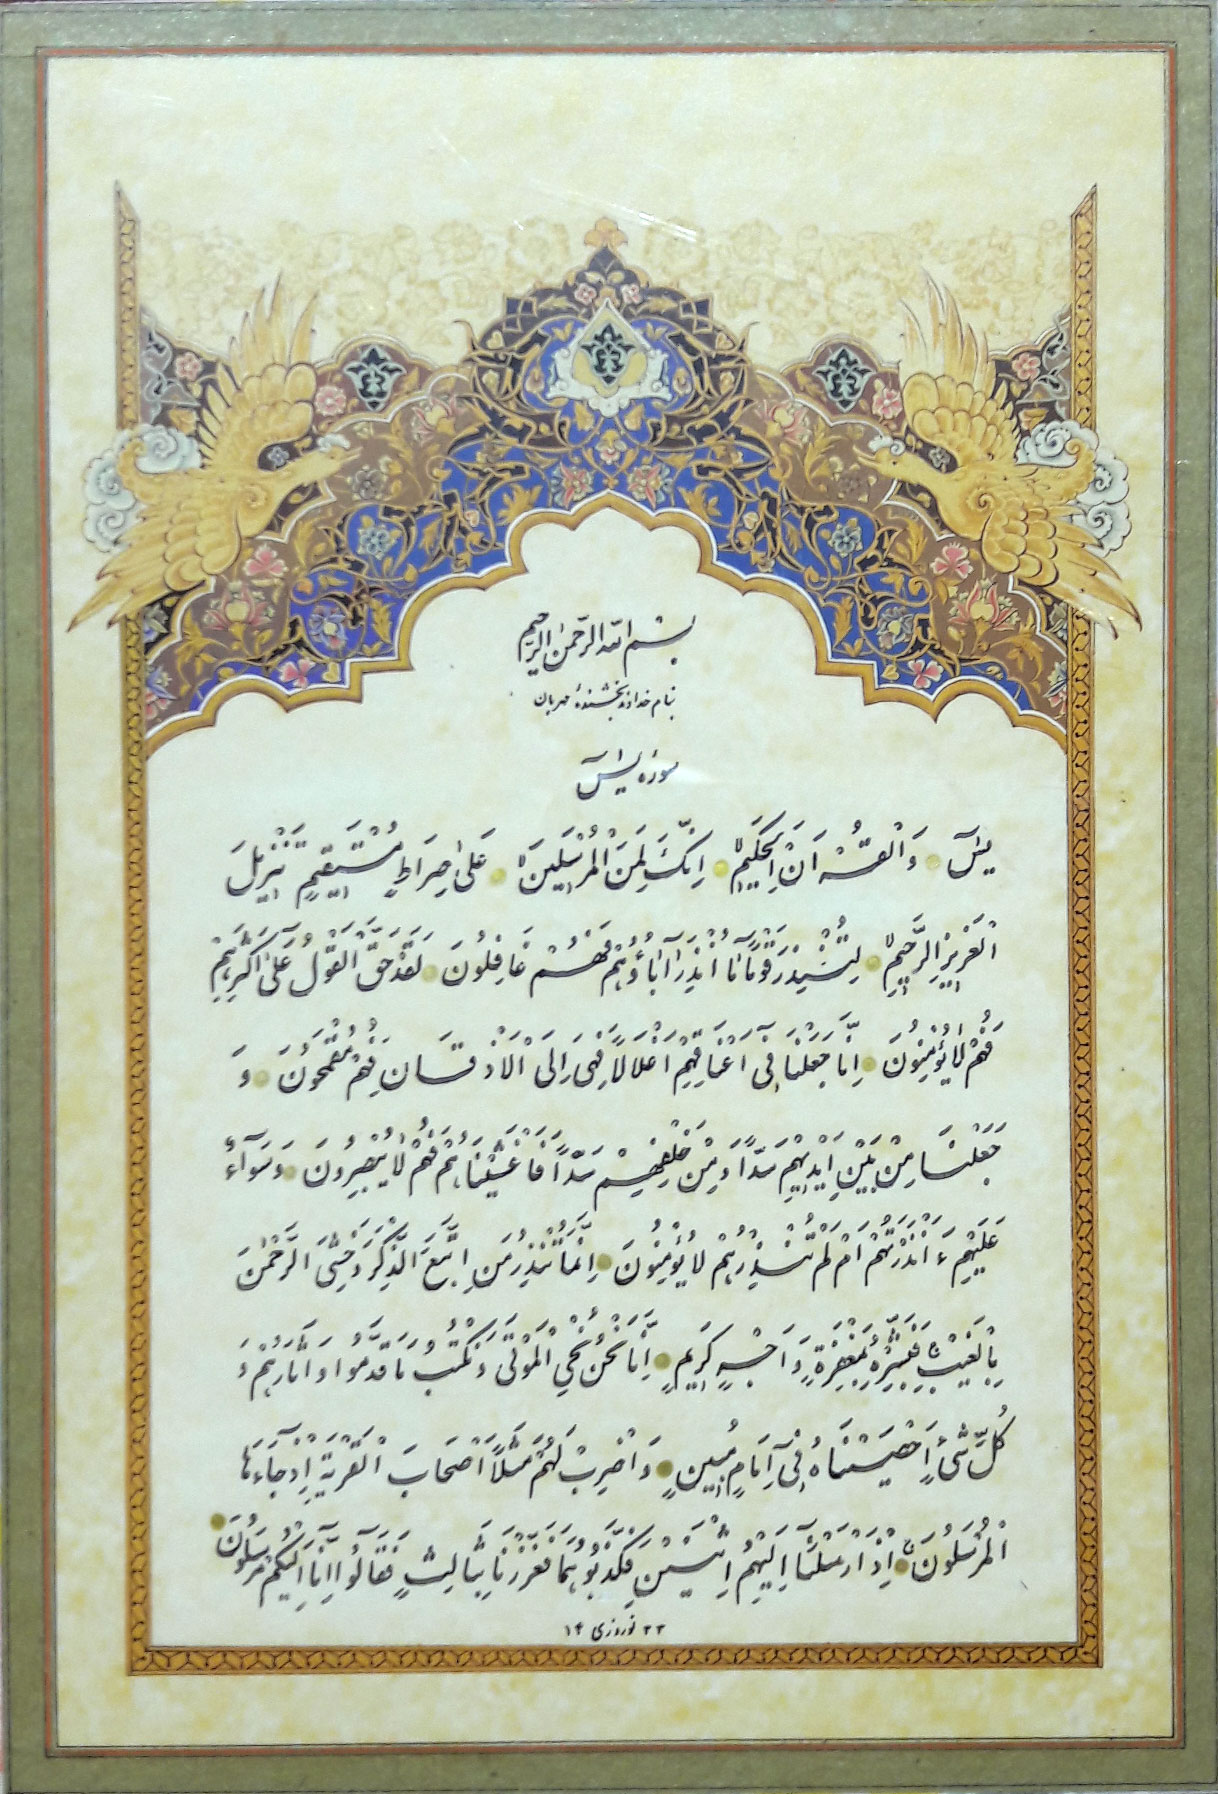 بِسْمِ اللهِ الرَّحْمٰنِ الرَّحِيمِ
بنام خداوند بخشندهٔ مهربان
سوره یٰسٓ
يٰسٓ وَالْقُرْاٰنِ الْحَكِيمِ اِنَّكَ لَمِنَ الْمُرْسَلِينَ عَلىٰ صِرَاطٍ مُسْتَقِيمٍ تَنْزِيلَ
الْعَزِيزِ الرَّحِيمِ لِتُنْذِرَ قَوْمًا مَا اُنْذِرَ اٰبَاؤُهُمْ فَهُمْ غَافِلُونَ لَقَدْ حَقَّ الْقَوْلُ عَلىٰ اَكْثَرِهِمْ
فَهُمْ لَا يُؤْمِنُونَ اِنَّا جَعَلْنَا فِى اَعْنَاقِهِمْ اَغْلَالًا فَهِىَ اِلَى الْاَذْقَانِ فَهُمْ مُقْمَحُونَ وَ
جَعَلْنَا مِنْ بَيْنِ اَيْدِيهِمْ سَدًّا وَمِنْ خَلْفِهِمْ سَدًّا فَاَغْشَيْنَاهُمْ فَهُمْ لَا يُبْصِرُونَ وَسَوَآءٌ
عَلَيْهِمْ ءَاَنْذَرْتَهُمْ اَمْ لَمْ تُنْذِرْهُمْ لَا يُؤْمِنُونَ اِنَّمَا تُنْذِرُ مَنِ اتَّبَعَ الذِّكْرَ وَخَشِىَ الرَّحْمٰنَ
بِالْغَيْبِ فَبَشِّرْهُ بِمَغْفِرَةٍ وَاَجْرٍ كَرِيمٍ اِنَّا نَحْنُ نُحْىِ الْمَوْتىٰ وَنَكْتُبُ مَا قَدَّمُوا وَاٰثَارَهُمْ وَ
كُلَّ شَىْءٍ اَحْصَيْنَاهُ فِى اِمَامٍ مُبِينٍ وَاضْرِبْ لَهُمْ مَثَلًا اَصْحَابَ الْقَرْيَةِ اِذْ جَاءَهَا
الْمُرْسَلُونَ اِذْ اَرْسَلْنَا اِلَيْهِمُ اثْنَيْنِ فَكَذَّبُوهُمَا فَعَزَّزْنَا بِثَالِثٍ فَقَالُوا اِنَّا اِلَيْكُمْ مُرْسَلُونَ